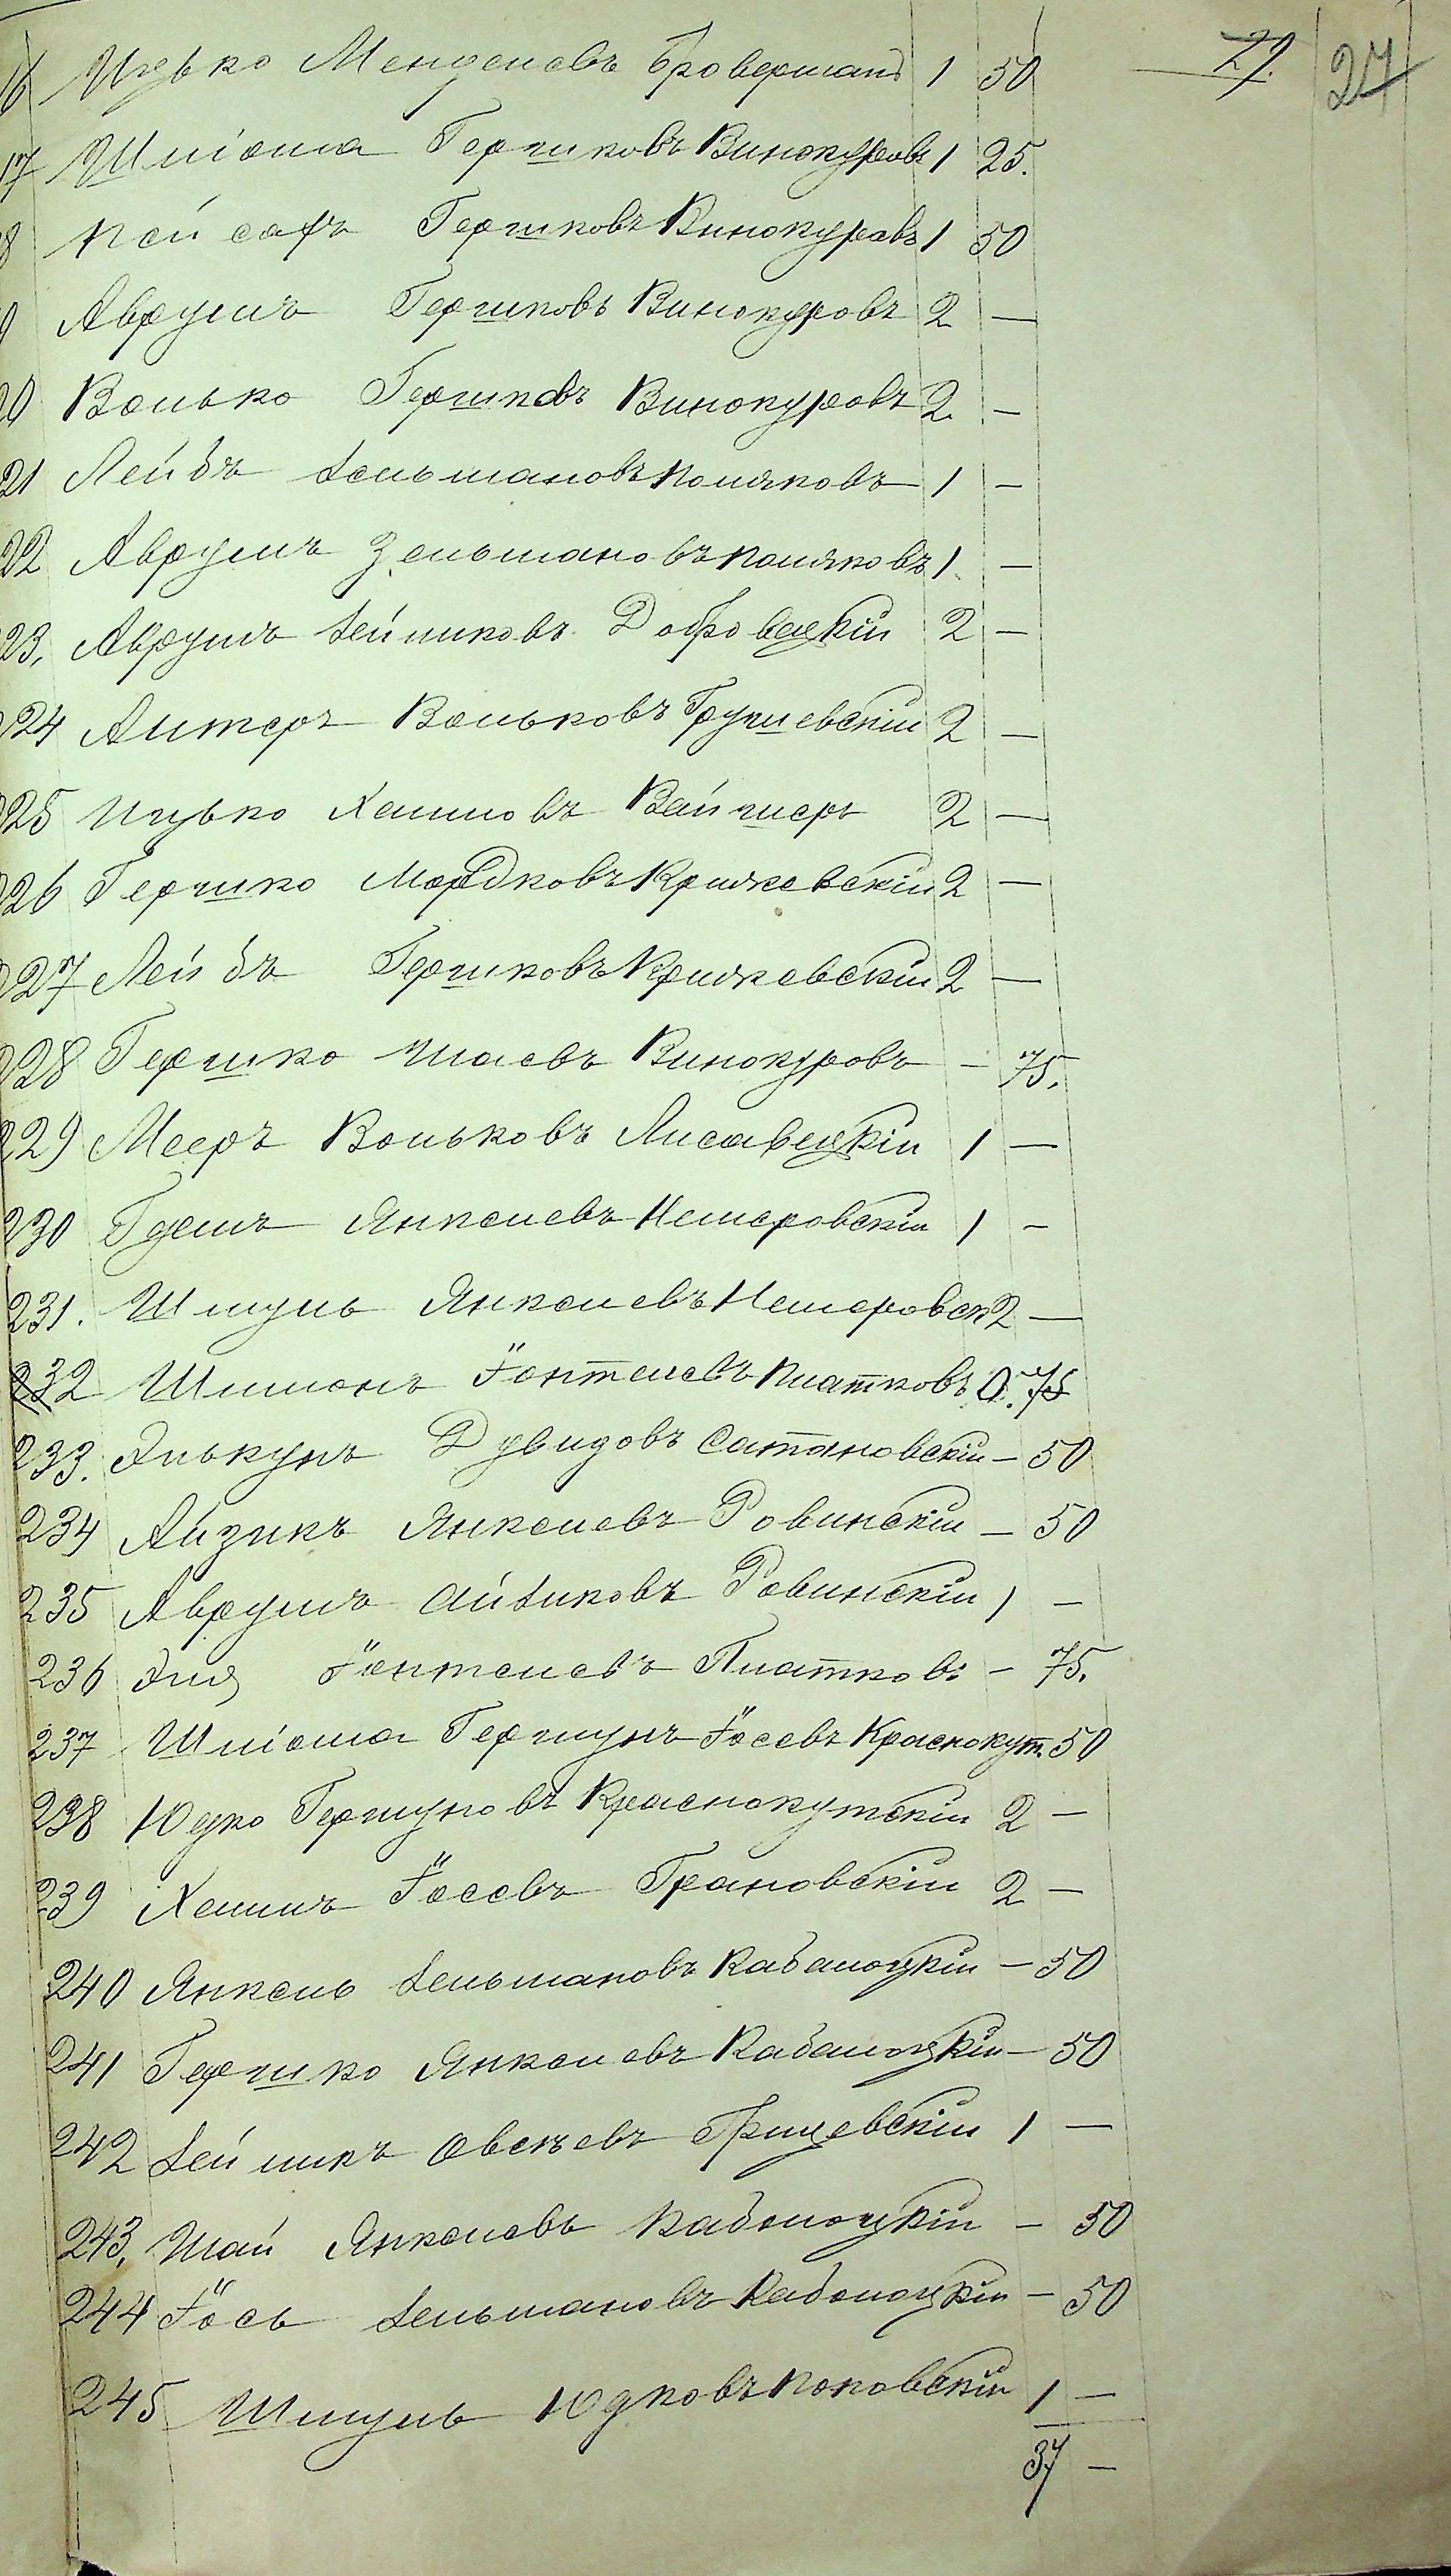 27. 27
16 Ицько Менделевъ Броверманъ 1 50
17 Шліома Гершковъ Винокуровъ 1 25.
8 Пейсахъ Гершковъ Винокуровъ 1 50
9 Аврумъ Гершковъ Винокуровъ 2 —
20 Волько Гершковъ Винокуровъ 2 —
21 Лейбъ Зельмановъ Поляковъ 1 —
22 Аврумъ Зельмановъ Поляковъ 1 —
23, Аврумъ Зейликовъ Добровецкій 2 —
224 Алтеръ Вольковъ Грушевскій 2 —
225 Ицько Хаимовъ Вайншеръ 2 —
226 Гершко Мордковъ Крижевскій 2 —
227 Лейбъ Гершковъ Крижевскій 2 —
228 Гершко Шаевъ Винокуровъ — 75.
229 Мееръ Вольковъ Лисавецкій 1 —
230 Гдемъ Янкелевъ Немеровскій 1 —
231. Шмуль Янкелевъ Немеровск 2 —
232 Шимонъ Іонтелевъ Платковъ 0.75
233. Элькунъ Дувидовъ Сатановскій — 50
234 Айзикъ Янкелевъ Ровинскій — 50
235 Аврумъ Айзиковъ Ровинскій 1 —
236 Эля Іонтелевъ Платковъ — 75.
237 Шліома Гершунъ Іосевъ Краснокут. 50
238 Юдко Гершуновъ Краснокутскій 2 —
239 Хаимъ Іосевъ Грановскій 2 —
240 Янкель Зельмановъ Кабалоцкій — 50
241 Гершко Янкелевъ Кабалоцкій — 50
242 Зейликъ Овсѣевъ Грицевскій 1 —
243, Шай Янкелевъ Кабалоцкій — 50
244 Іось Зельмановъ Кабалоцкій — 50
245 Шмуль Юдковъ Поповскій 1 —
37 —